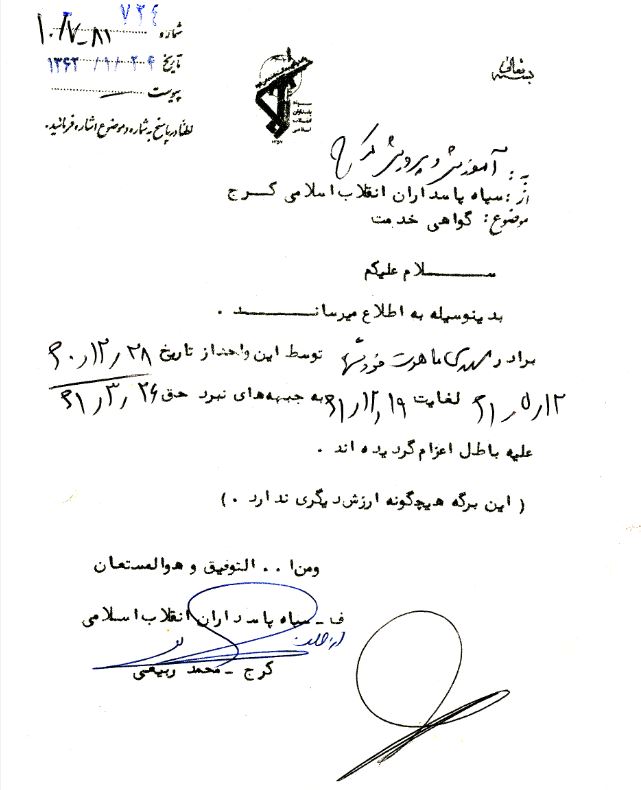 بسمه تعالی
شماره ۸۱-۷/۱۰ ۷۳۴
تاریخ ۱۳۶۲/۱/۲۴
پیوست —
لطفاً در پاسخ به شماره و موضوع اشاره فرمائید.
به: آموزش و پرورش کرج
از: سپاه پاسداران انقلاب اسلامی کرج
موضوع: گواهی خدمت
سلام علیکم
بدینوسیله به اطلاع میرساند .
برادر مهدی توسط این واحد از تاریخ ۶۰٫۱۲٫۲۸
۶۱٫۵٫۱۲ لغایت ۶۱٫۱۲٫۱۹ به جبهه‌های نبرد حق ۶۱٫۳٫۲۶
علیه باطل اعزام گردیده اند .
( این برگه هیچگونه ارزش دیگری ندارد . )
ومن ا . . التوفیق و هوالمستعان
ف ـ سپاه پاسداران انقلاب اسلامی
کرج ـ محمد ربیعی